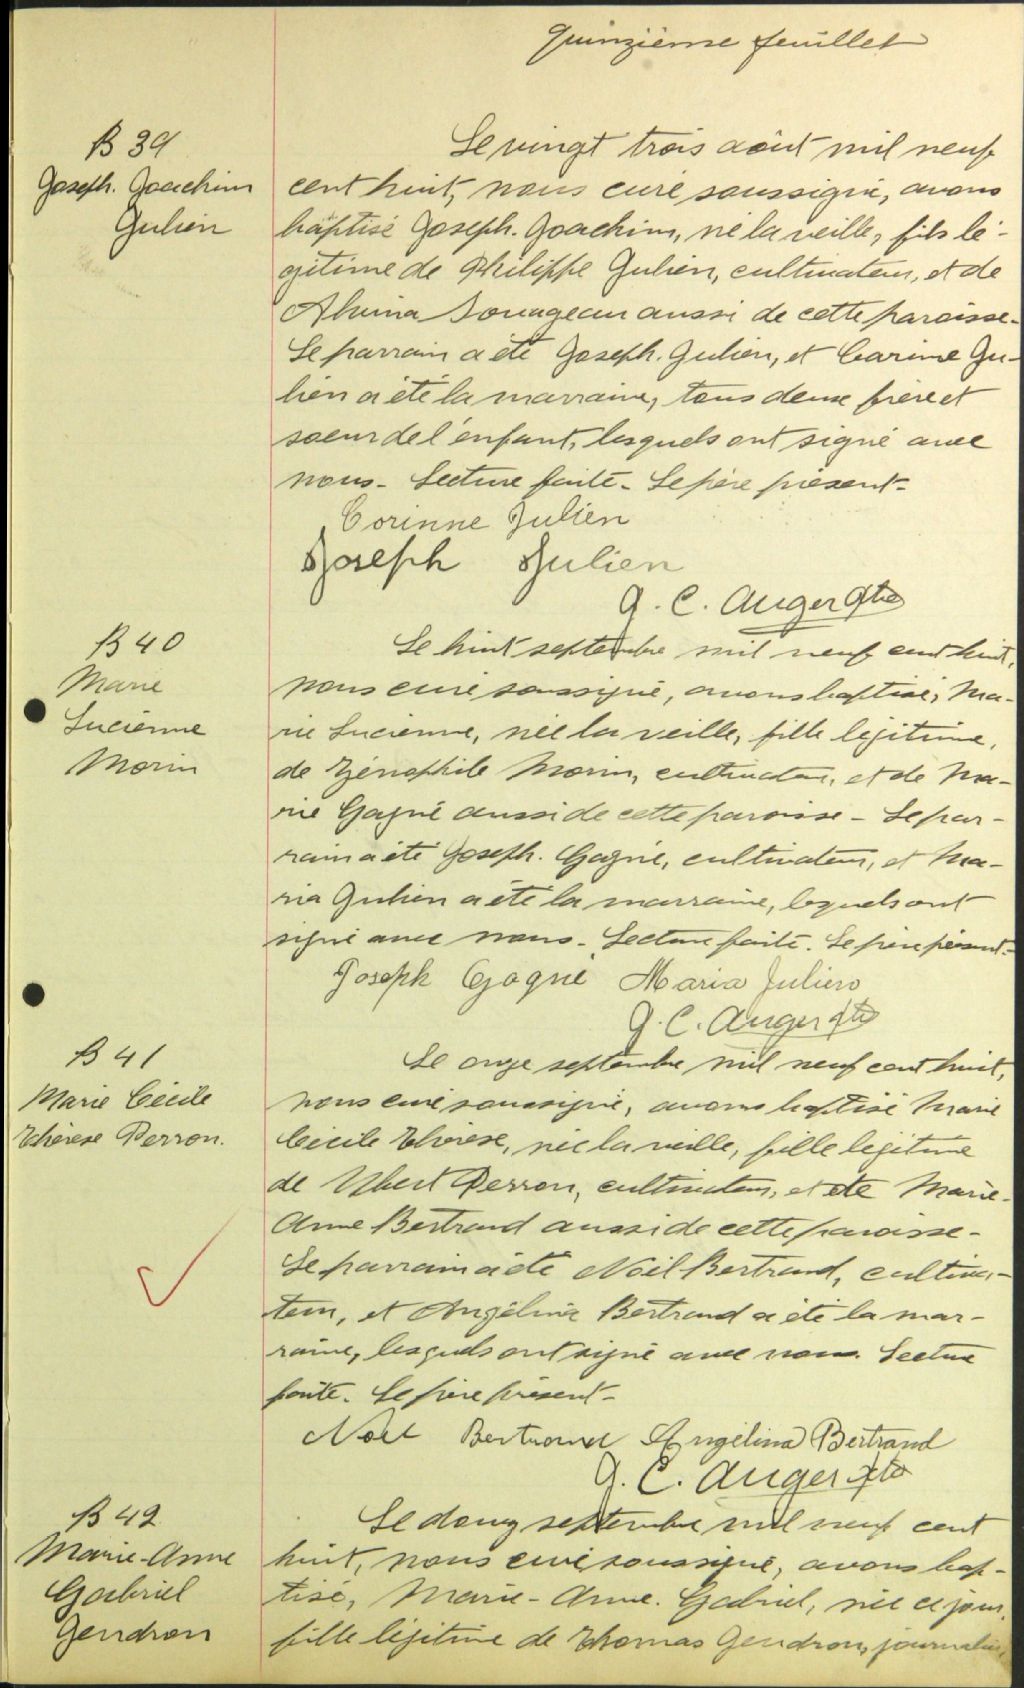 Quinzième feuillet
B 39
Joseph. Joachim
Julien
Le vingt trois août mil neuf
cent huit, nous curé soussigné, avons
baptisé Joseph. Joachim, né la veille, fils lé-
gitime de Philippe Julien, cultivateur, et de
Alvina Sauvageau aussi de cette paroisse-
Le parrain a été Joseph. Julien, et Corinne Ju-
lien a été la marraine, tous deux frère et
soeur de l'enfant, lesquels ont signé avec
nous- Lecture faite- Le père présent-
Corinne Julien
Joseph Julien
J. C. Auger Ptre
B 40
Marie
Lucienne
Morin
Le huit septembre mil neuf cent huit,
nous curé soussigné, avons baptisé, Ma-
rie Lucienne, née la veille, fille légitime,
de Zénophile Morin, cultivateur, et de Ma-
rie Gagné aussi de cette paroisse- Le par-
rain a été Joseph. Gagné, cultivateur, et Ma-
ria Julien a été la marraine, lesquels ont
signé avec nous- Lecture faite. Le père présent-
Joseph Gagné Maria Julien
J. C. Auger Ptre
B 41
Marie Cécile
Thérèse Perron.
Le onze septembre mil neuf cent huit,
nous curé soussigné, avons baptisé Marie
Cécile Thérèse, née la veille, fille légitime
de Perron, cultivateur, et de Marie-
Anne Bertrand aussi de cette paroisse-
Le parrain a été Noël Bertrand, cultiva-
teur, et Angélina Bertrand a été la mar-
raine, lesquels ont signé avec nous. Lecture
faite. Le père présent-
Noel Bertrand Angélina Bertrand
J. C. Auger Ptre
B 42
Marie-Anne
Gabriel
Gendron
Le douze septembre mil neuf cent
huit, nous curé soussigné, avons bap-
tisé, Marie-Anne. Gabriel, née ce jour,
fille légitime de Thomas Gendron, journalier,